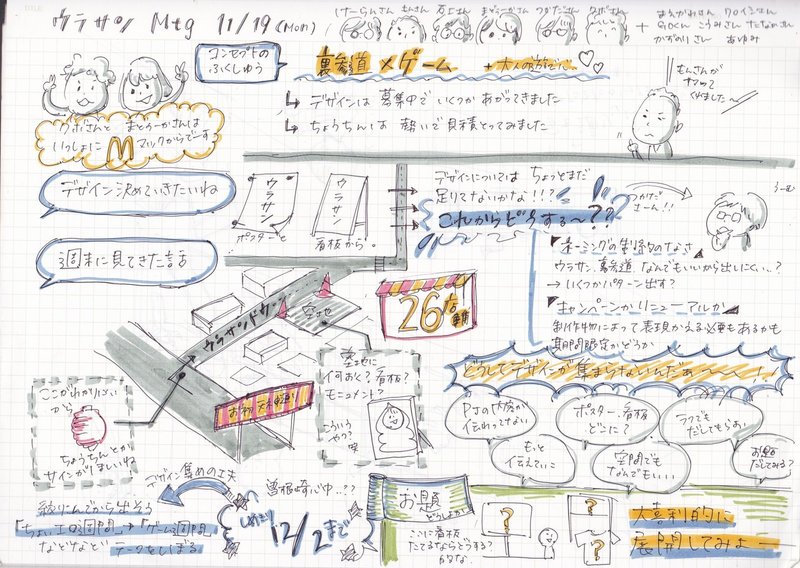 ウラサン Mtg 11/19 (Mon)
コンセプトの
ふくしゅう
裏参道 × ゲーム + 大人の遊び心
もんさんが
クボさんと まとぅーかさんは
いっしょに M マックからでーす
↳ デザインは 募集中で いくつか あがってきました
↳ ちょうちんは 勢いで 見積とってみました
デザイン決めていきたいね
3週末に見てきた話
ウラサン
ポスターと
ウラサン
看板から。
デザインについては ちょっとまだ
足りてないかな!!?
これからどうする〜??
つかださーん!!
うーむ
ネーミングの制約のなさ
ウラサン 裏参道 なんでもいいから出しにくい..?
→ いくつかパターン出す?
キャンペーンかリニューアルか
制作物によって表現かえる必要もあるかも
期間限定かどうか
どうしてデザインが集まらないんだぁ〜〜!!
PJの内容が
伝わってない
もっと
伝えていこ
ポスター、看板
どこに?
空間でも
なんでもいい
ラフでも
だしてもらお
お題
だしてみる?
ウラサンドウ
空地
26店
空地に
何おく?看板?
モニュメント?
こういう
やつ?
笑
ここがわかりにくい
から
ちょうちんとか
サインがほしいね
デザイン集めの工夫
絞りこんでから出そう
「ちょいエロ週間」→「ゲーム週間」
などなど テーマをしぼる
曽根崎心中..??
しめきり
12/2まで
お題
どうしよか
ここに看板
たてるならどうする?
的な
大喜利的に
展開してみよー